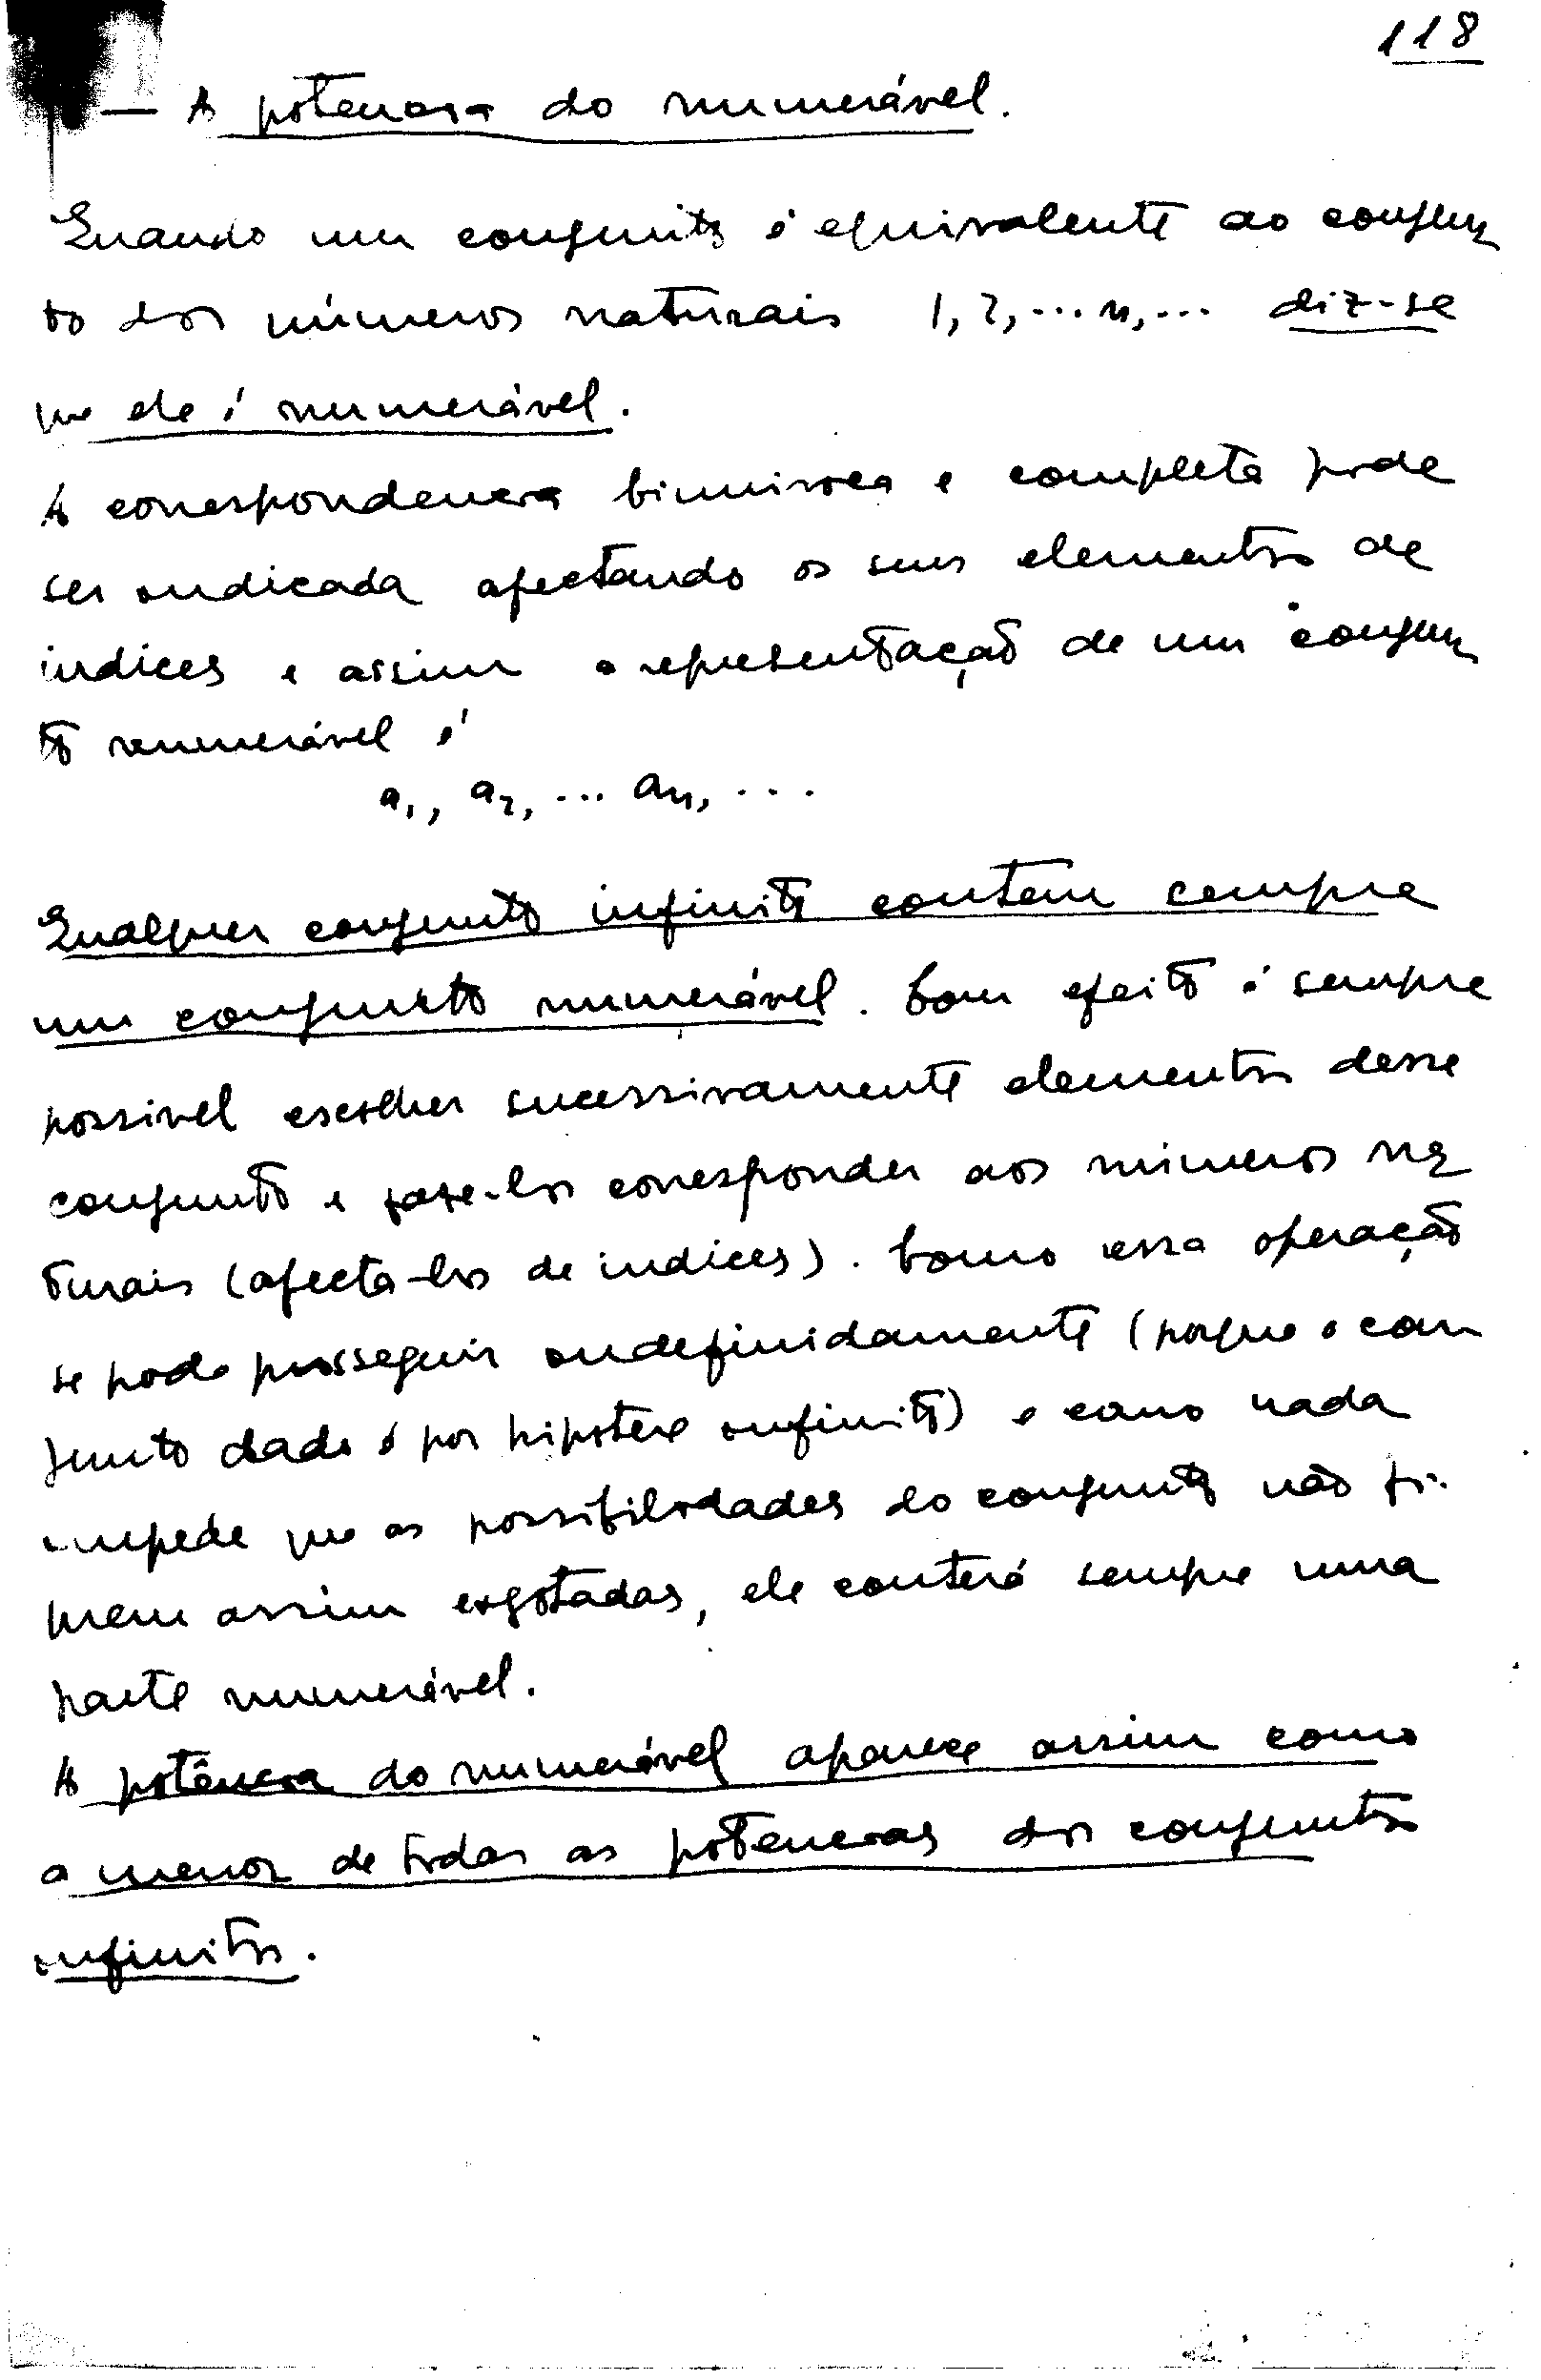 118
— A potencia do numerável.
Quando um conjunto é equivalente ao conjun
to dos números naturais 1, 2, ... n, ... diz-se
que ele é numerável.
A correspondencia biunivoca e completa pode
ser indicada afectando os seus elementos de
indices e assim a representação de um conjun
to numerável é
a₁, a₂, ... aₙ, ...
Qualquer conjunto infinito contem sempre
um conjunto numerável. Com efeito é sempre
possivel escolher sucessivamente elementos desse
conjunto e faze-los corresponder aos números na
turais (afecta-los de indices). Como essa operação
se pode prosseguir indefinidamente (porque o con
junto dado é por hipotese infinito) e como nada
impede que as possibilidades do conjunto não fi-
quem assim esgotadas, ele conterá sempre uma
parte numerável.
A potência do numerável aparece assim como
a menor de todas as potencias dos conjuntos
infinitos.